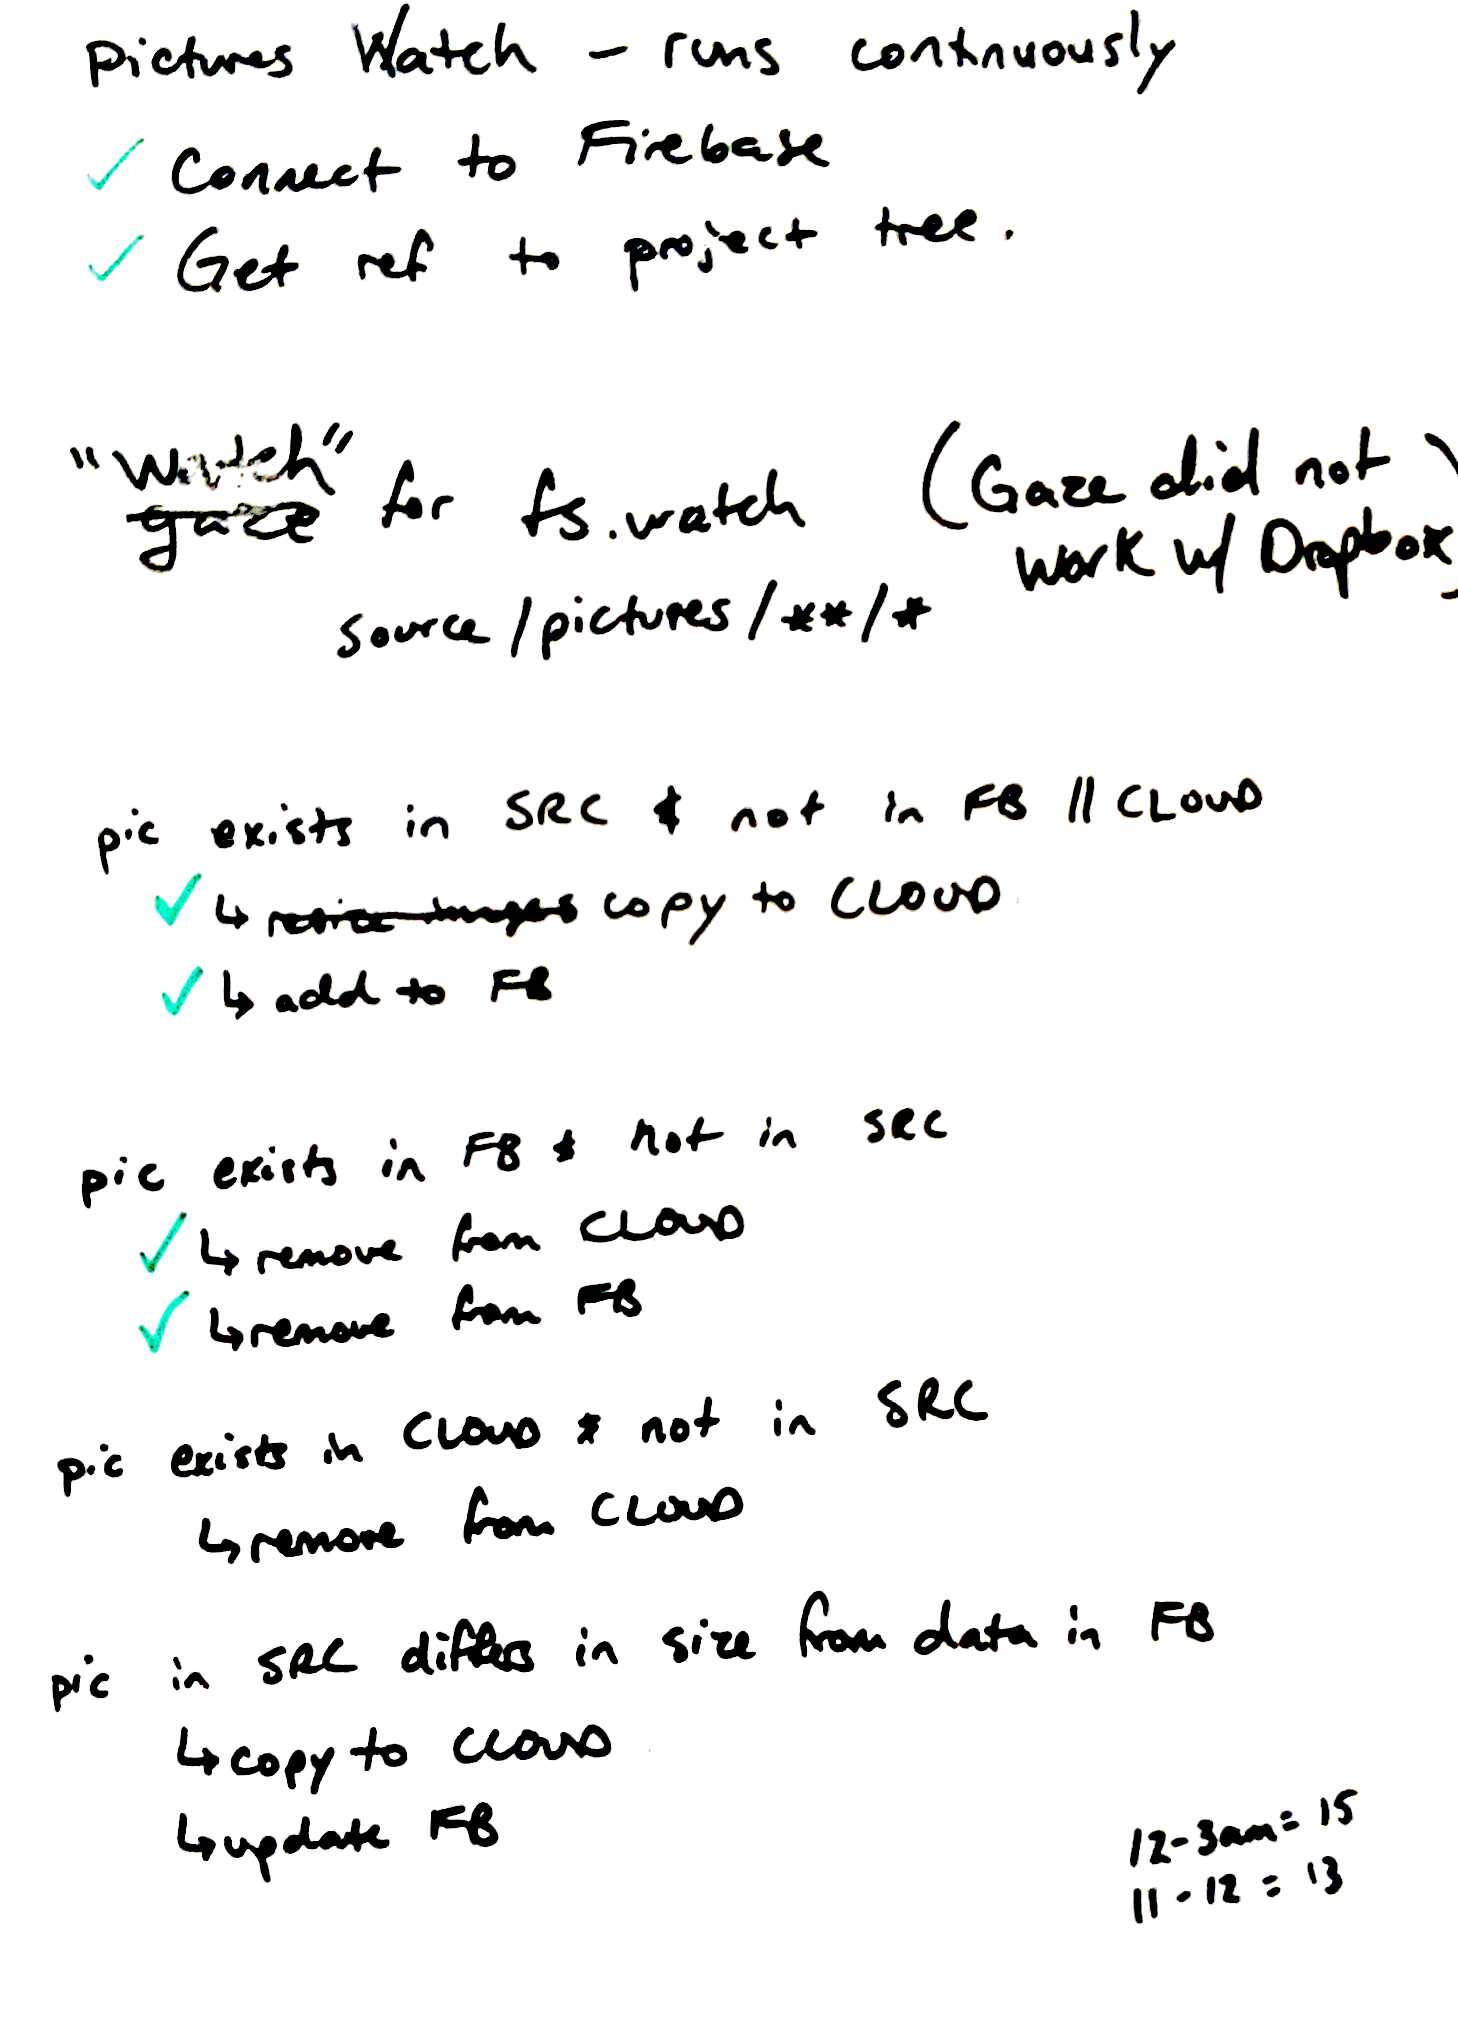 pictures Watch – runs continuously
✓ Connect to Firebase
✓ Get ref to project tree.
"watch"
gaze for fs.watch (Gaze did not
work w/ Dropbox)
source/pictures/**/*
pic exists in SRC & not in FB || CLOUD
✓ ↳ resize images copy to CLOUD
✓ ↳ add to FB
pic exists in FB & not in SRC
✓ ↳ remove from CLOUD
✓ ↳ remove from FB
pic exists in CLOUD & not in SRC
↳ remove from CLOUD
pic in SRC differs in size from data in FB
↳ copy to CLOUD
↳ update FB
12-3am = 15
11-12 = 13